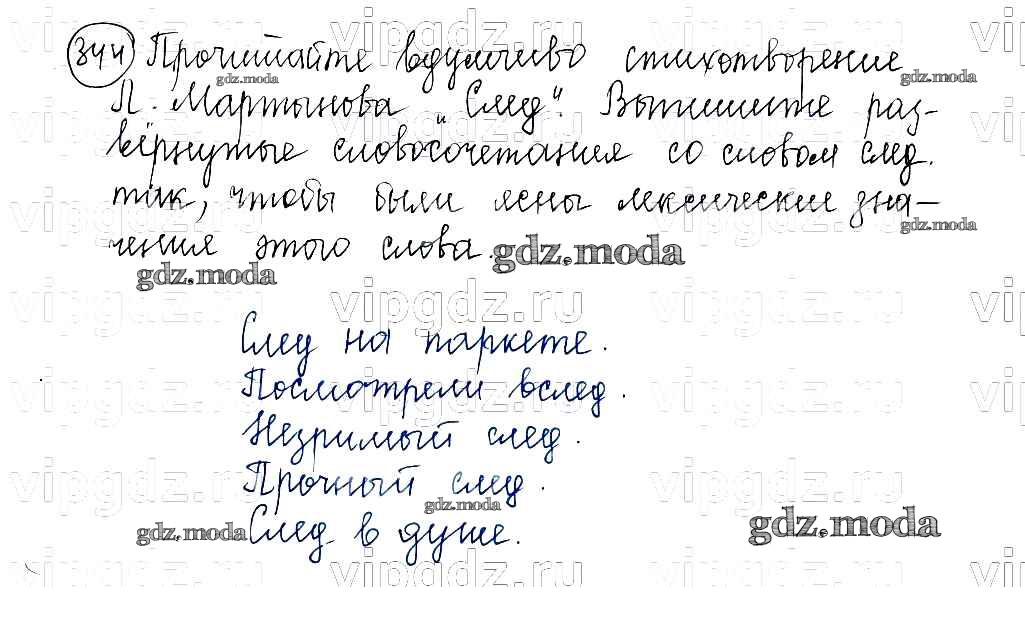 344 Прочитайте вдумчиво стихотворение
Л. Мартынова „След". Выпишите раз-
вёрнутые словосочетания со словом след.
так, чтобы были ясны лексические зна-
чения этого слова.
След на паркете.
Посмотрели вслед.
Незримый след.
Прочный след.
След в душе.
gdz.moda
vipgdz.ru